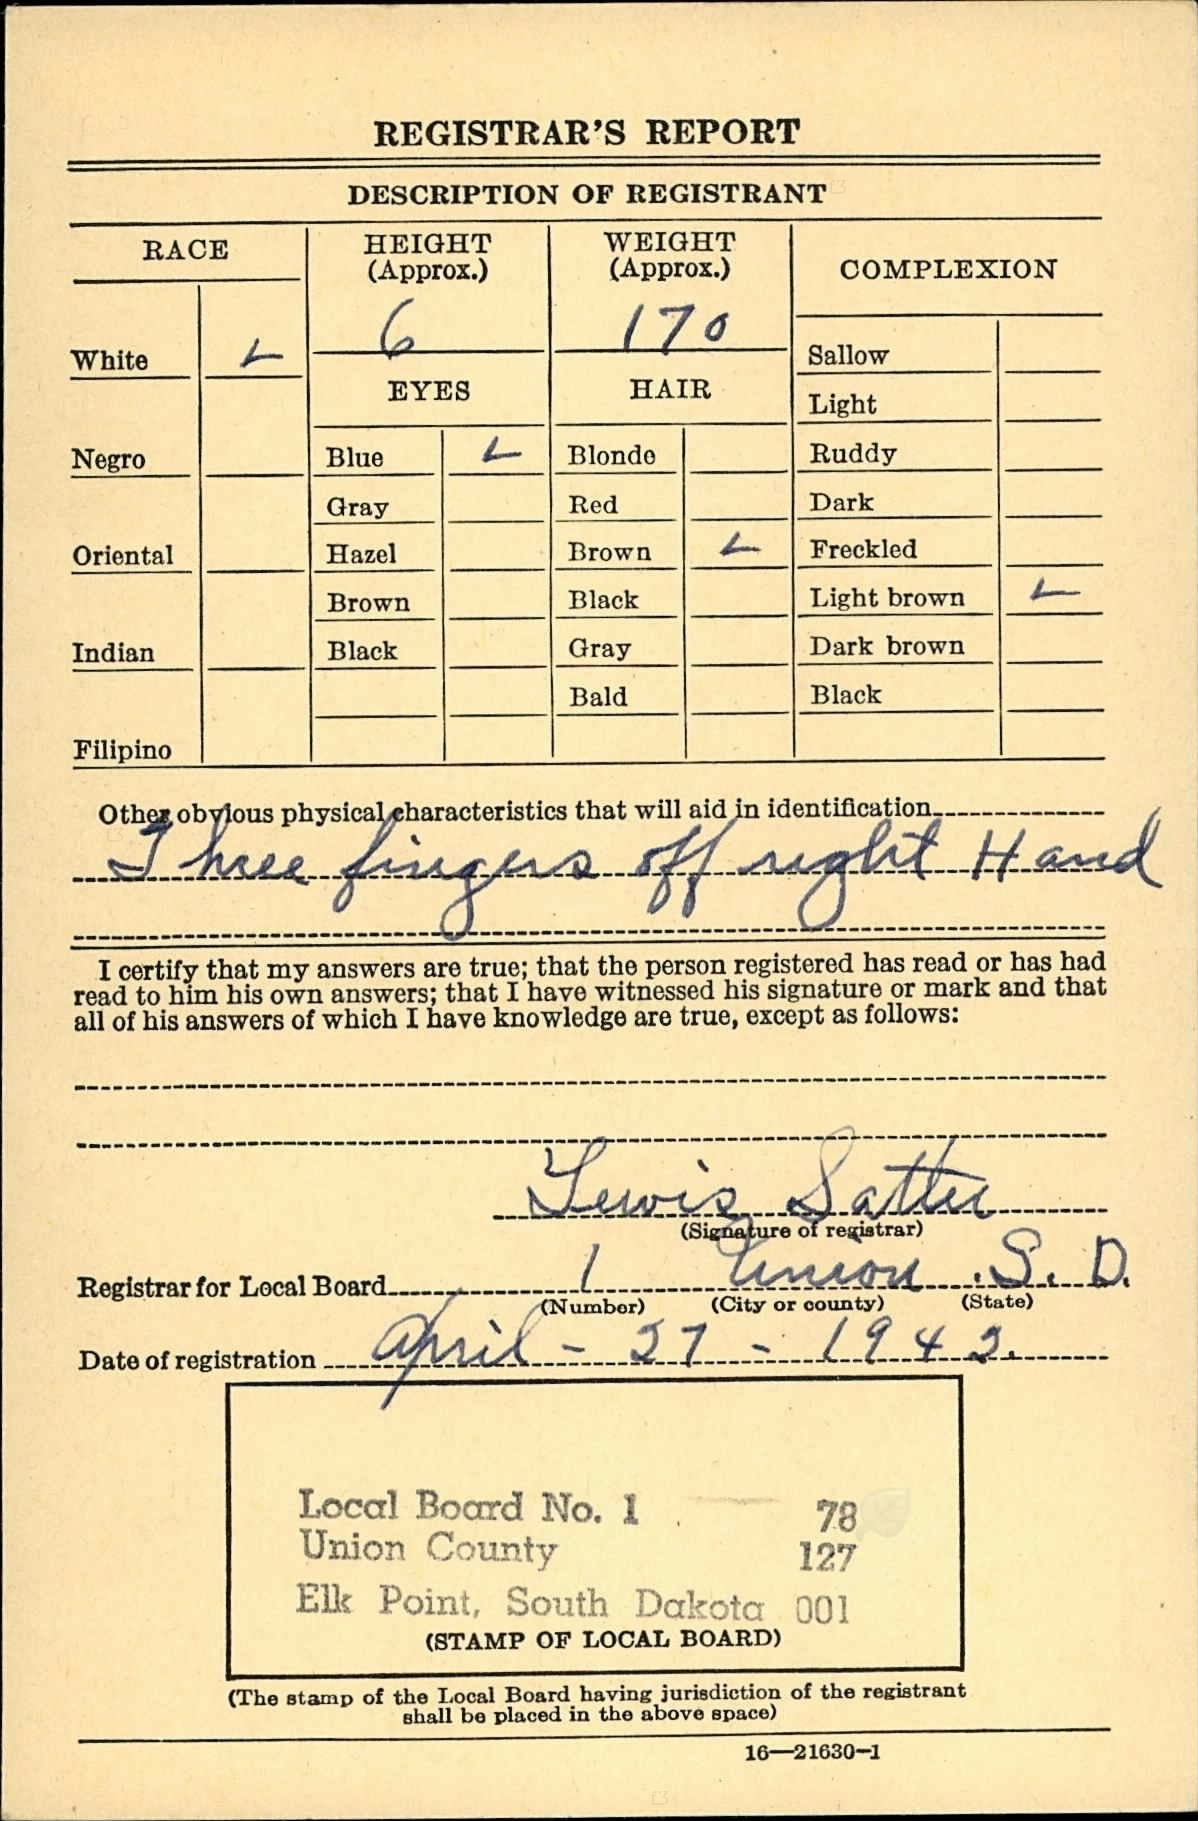 REGISTRAR'S REPORT
DESCRIPTION OF REGISTRANT
RACE
HEIGHT
(Approx.)
WEIGHT
(Approx.)
COMPLEXION
6
170
White
Sallow
EYES
HAIR
Light
Negro
Blue
Blonde
Ruddy
Gray
Red
Dark
Oriental
Hazel
Brown
Freckled
Brown
Black
Light brown
Indian
Black
Gray
Dark brown
Bald
Black
Filipino
Other obvious physical characteristics that will aid in identification
Three fingers off right Hand
I certify that my answers are true; that the person registered has read or has had
read to him his own answers; that I have witnessed his signature or mark and that
all of his answers of which I have knowledge are true, except as follows:
Lewis Satter
(Signature of registrar)
Registrar for Local Board 1 Union S. D.
(Number) (City or county) (State)
Date of registration April - 27 - 1942.
Local Board No. 1 78
Union County 127
Elk Point, South Dakota 001
(STAMP OF LOCAL BOARD)
(The stamp of the Local Board having jurisdiction of the registrant
shall be placed in the above space)
16—21630-1